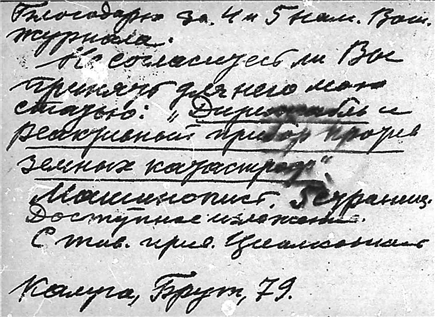 Благодарю за 4 и 5 нам. Ваш.
журнала.
Не согласитесь ли Вы
принять для него мою
статью: „Дирижабль и
реактивный прибор против
земных катастроф".
Машинопист. страниц.
Доступное изложение.
С тов. прив. Циолковский
Калуга, Брут, 79.